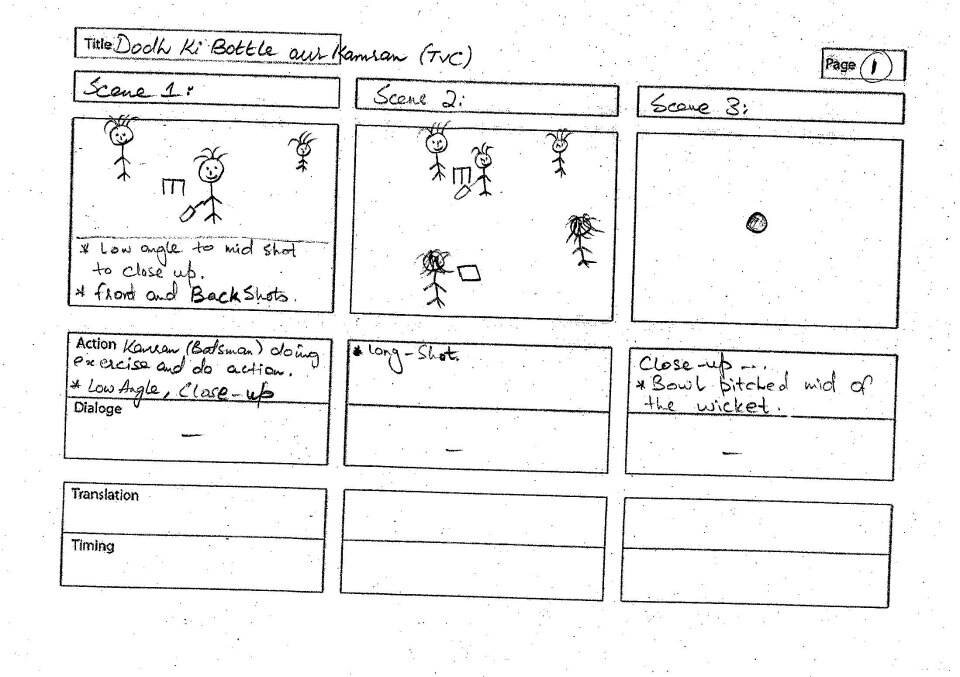 Title Dodh Ki Bottle aur Kamran (TVC)
Page 1
Scene 1:
Scene 2:
Scene 3:
* Low angle to mid shot
to close up.
* front and Back Shots.
Action Kamran (Batsman) doing
exercise and do action.
* Low Angle, Close-up
* Long-Shot.
Close-up ...
* Bowl pitched mid of
the wicket.
Dialoge
-
-
-
Translation
Timing